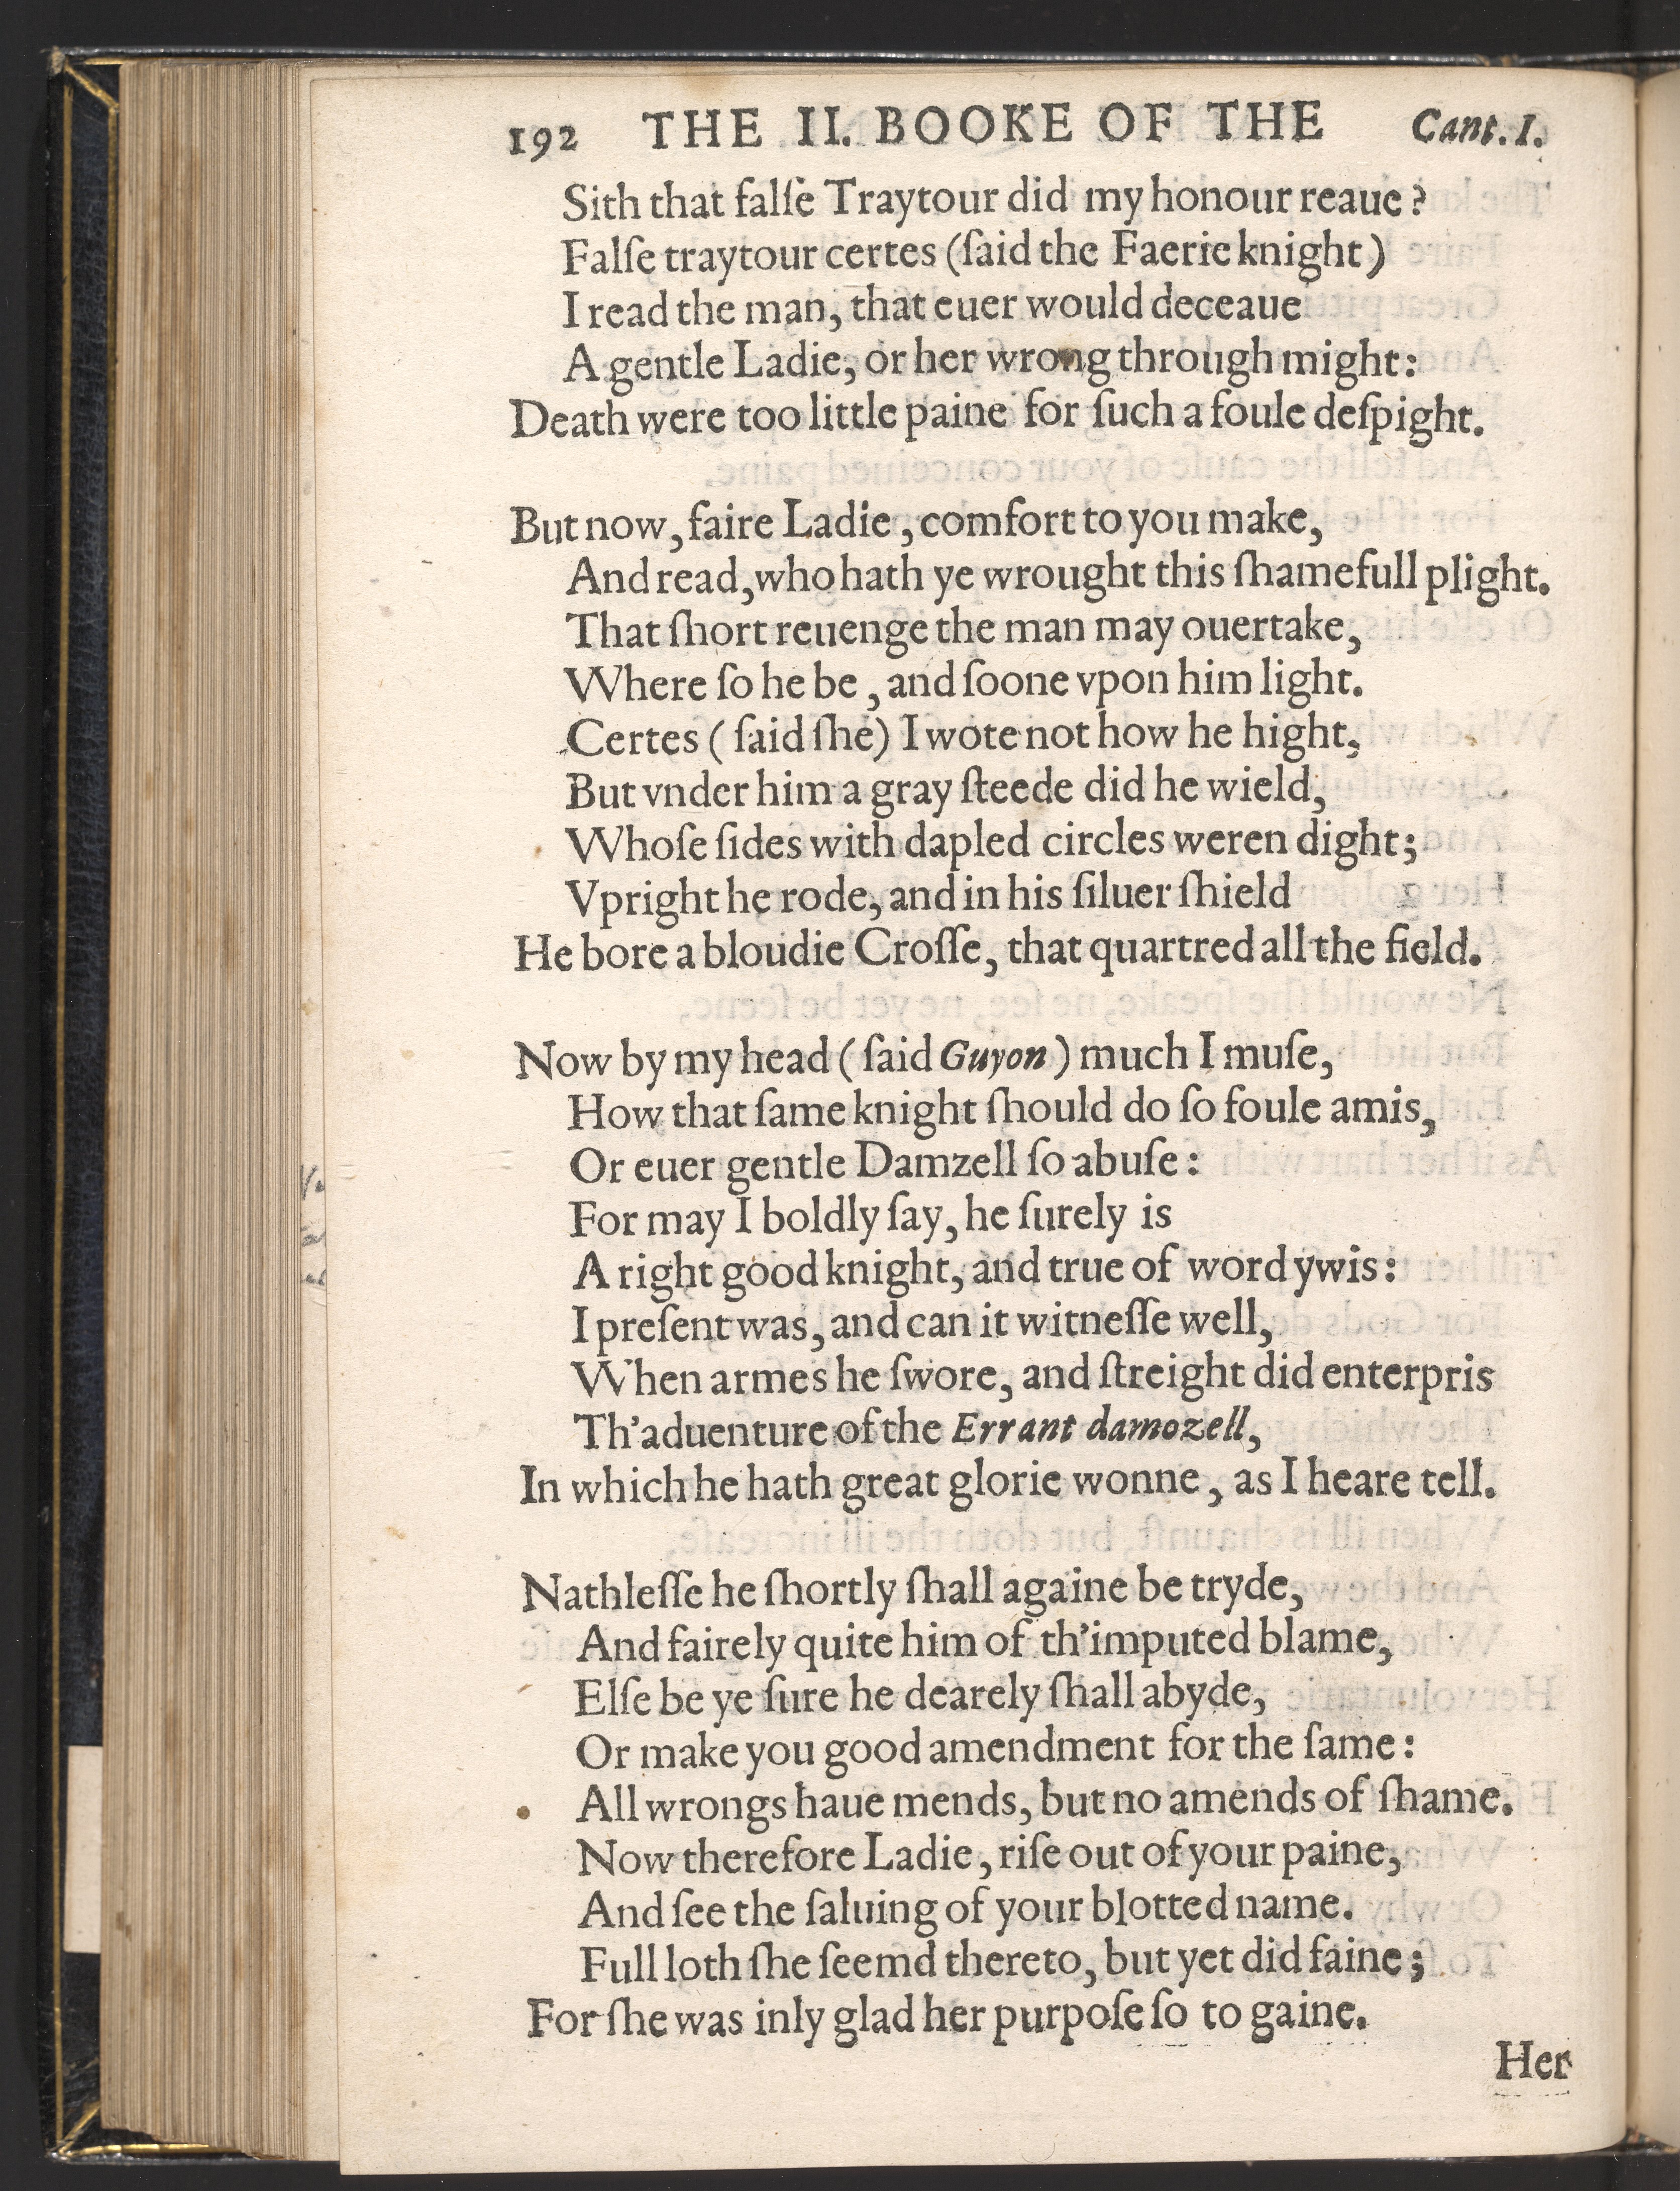 192 THE II. BOOKE OF THE Cant. I.
Sith that falſe Traytour did my honour reaue?
Falſe traytour certes (ſaid the Faerie knight)
I read the man, that euer would deceaue
A gentle Ladie, or her wrong through might:
Death were too little paine for ſuch a foule deſpight.
But now, faire Ladie, comfort to you make,
And read, who hath ye wrought this ſhamefull plight.
That ſhort reuenge the man may ouertake,
Where ſo he be, and ſoone vpon him light.
Certes (ſaid ſhe) I wote not how he hight,
But vnder him a gray ſteede did he wield,
Whoſe ſides with dapled circles weren dight;
Vpright he rode, and in his ſiluer ſhield
He bore a bloudie Croſſe, that quartred all the field.
Now by my head (ſaid Guyon) much I muſe,
How that ſame knight ſhould do ſo foule amis,
Or euer gentle Damzell ſo abuſe:
For may I boldly ſay, he ſurely is
A right good knight, and true of word ywis:
I preſent was, and can it witneſſe well,
When armes he ſwore, and ſtreight did enterpris
Th'aduenture of the Errant damozell,
In which he hath great glorie wonne, as I heare tell.
Nathleſſe he ſhortly ſhall againe be tryde,
And fairely quite him of th'imputed blame,
Elſe be ye ſure he dearely ſhall abyde,
Or make you good amendment for the ſame:
All wrongs haue mends, but no amends of ſhame.
Now therefore Ladie, riſe out of your paine,
And ſee the ſaluing of your blotted name.
Full loth ſhe ſeemd thereto, but yet did faine;
For ſhe was inly glad her purpoſe ſo to gaine.
Her